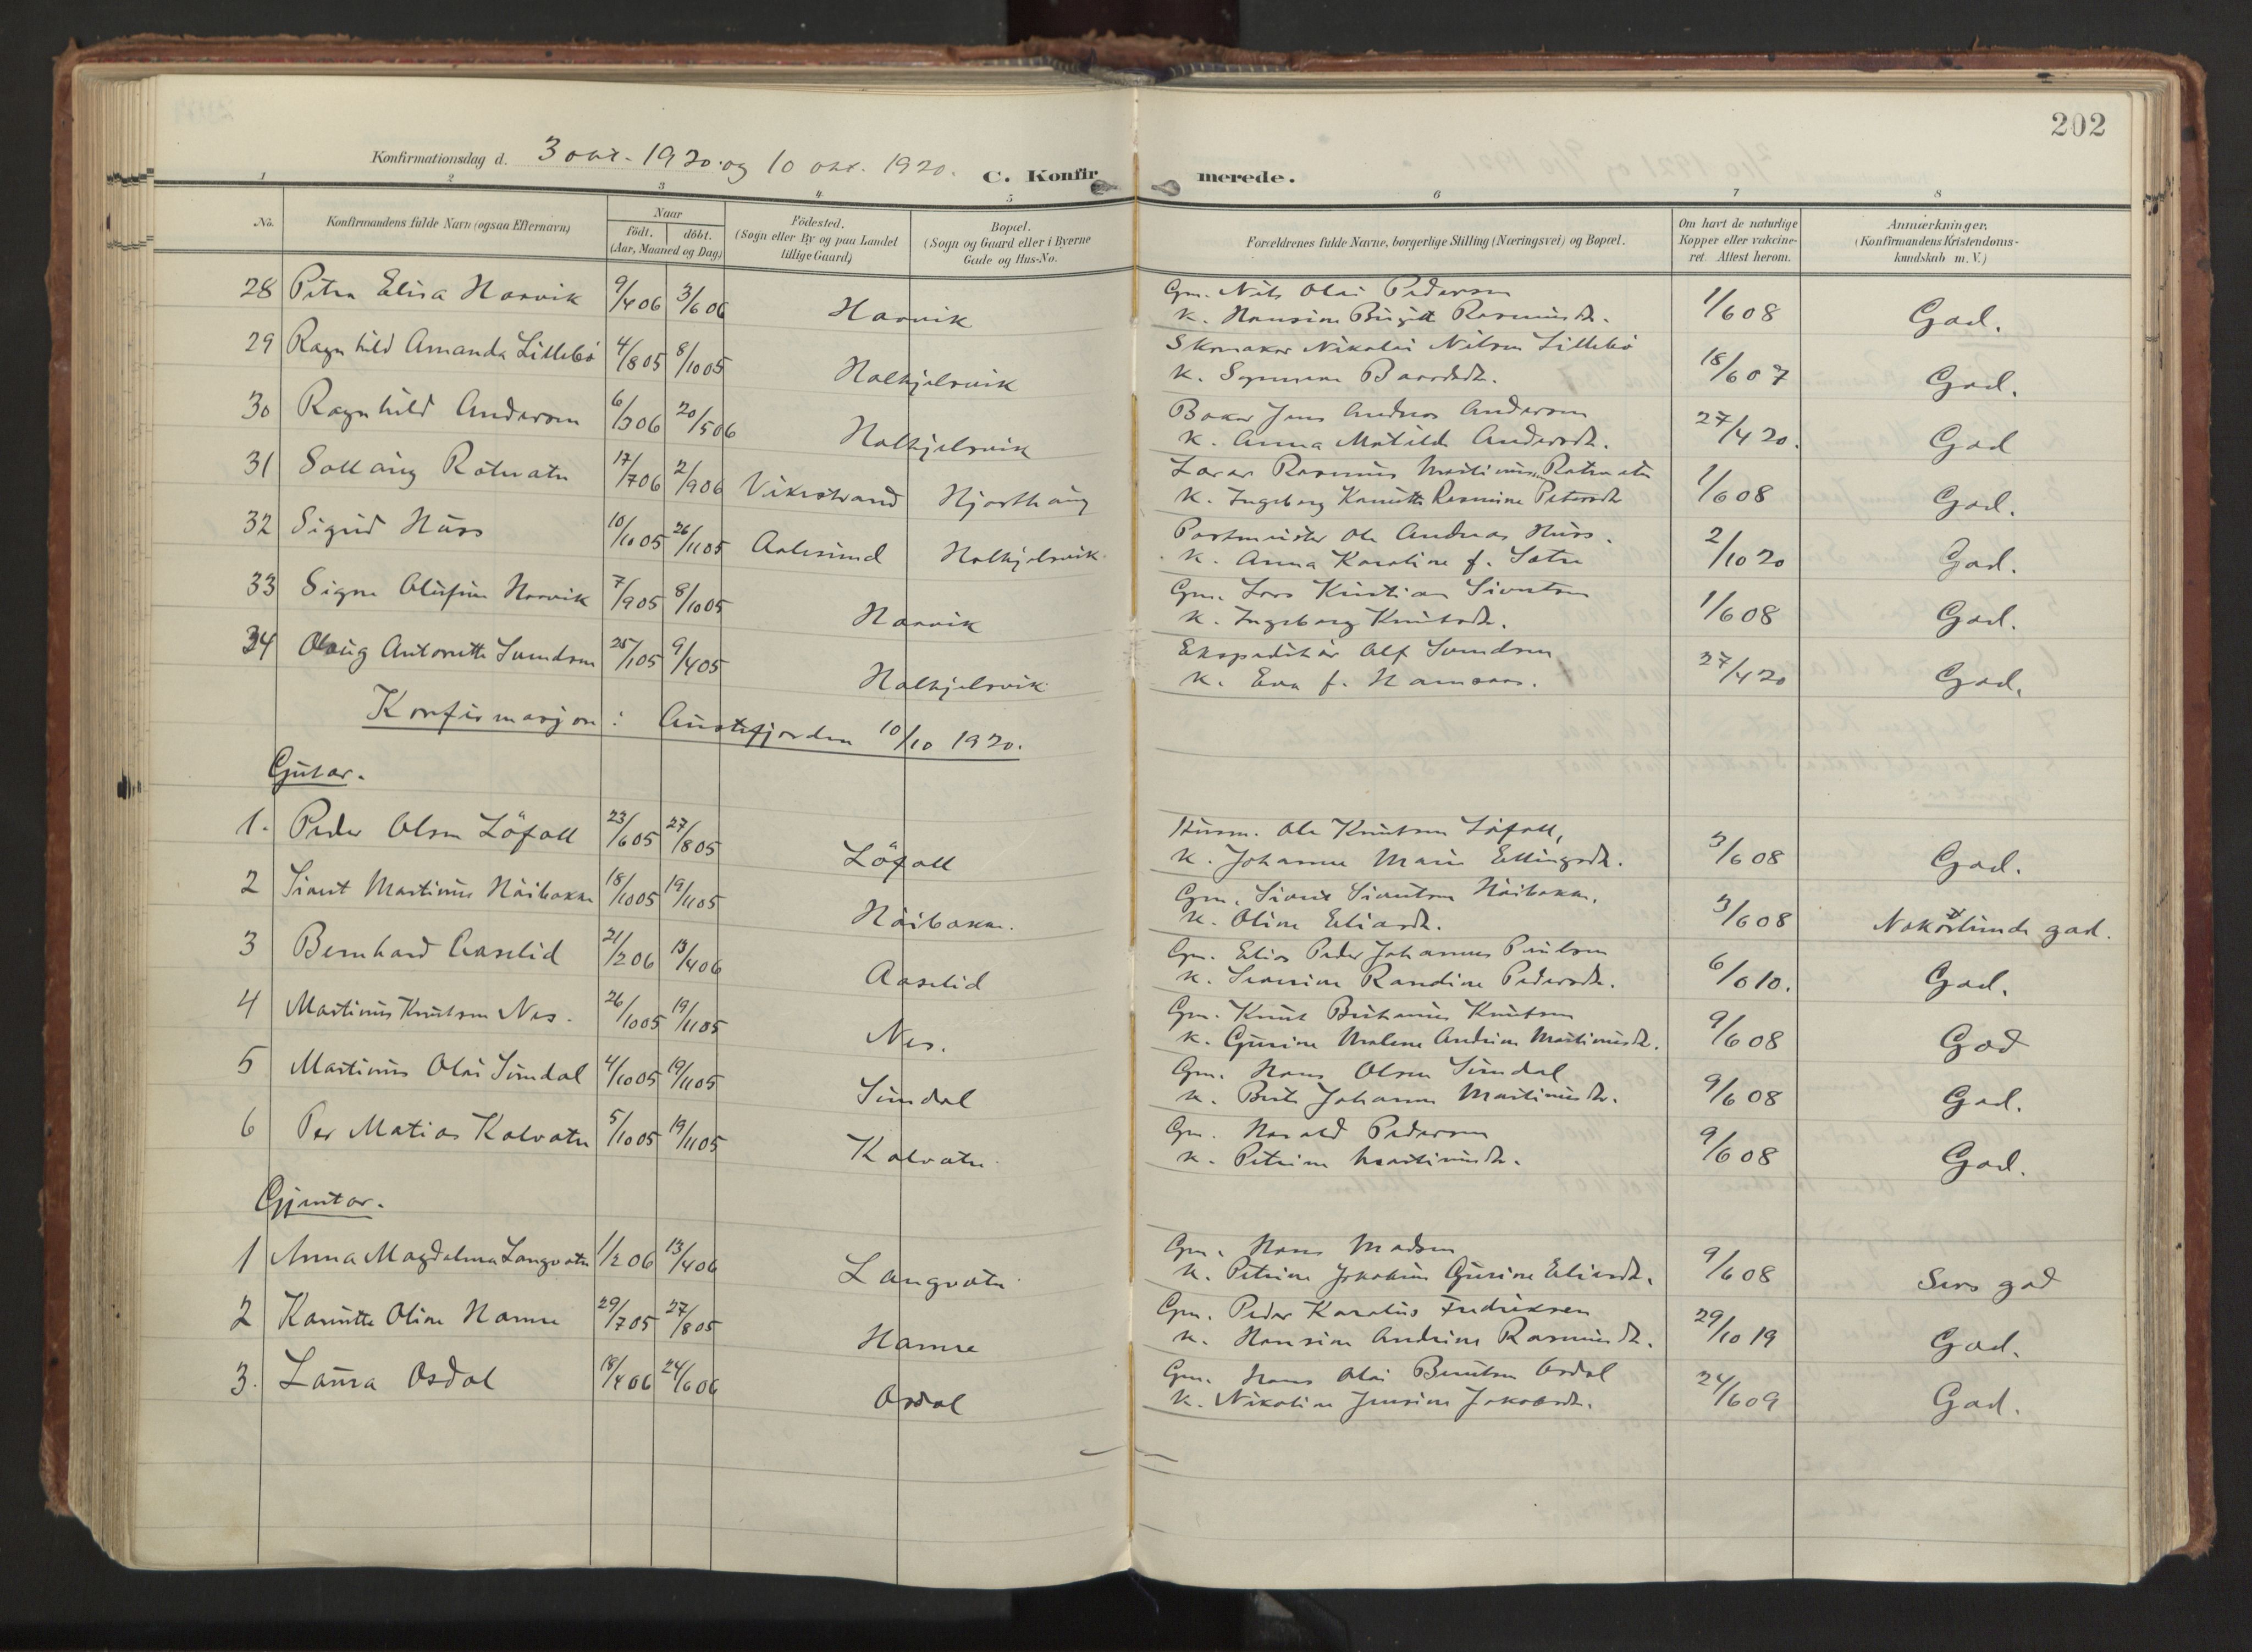 202
Konfirmationsdag d. 3 okt. 1920. og 10 okt. 1920. C. Konfirmerede.
1 2 3 4 5 6 7 8
No. Konfirmandens fulde Navn (ogsaa Efternavn) Naar født. døbt. (Aar, Maaned og Dag) Födested. (Sogn eller By og paa Landet tillige Gaard) Bopæl. (Sogn og Gaard eller i Byerne Gade og Hus-No. Forældrenes fulde Navne, borgerlige Stilling (Næringsvei) og Bopæl. Om havt de naturlige Kopper eller vakcineret. Attest herom. Anmærkninger. (Konfirmandens Kristendomskundskab m. V.)
28 Petra Elisa Haavik 9/4 06 3/6 06 Haavik Gm. Nils Olai Pedersen 1/6 08 God.
K. Hansine Birgit Rasmusdt.
29 Ragnhild Amanda Lillebö 4/8 05 8/10 05 Halkjelsvik Skomakar Nikolai Nilsen Lillebö 18/6 07 God.
K. Synneve Baardsdt.
30 Ragnhild Andersen 6/3 06 20/5 06 Halkjelsvik Bakar Jens Andreas Andersen 27/4 20. God
K. Anna Matilde Andersdt.
31 Solla​ug Rotevatn 17/7 06 2/9 06 Vikestrand Hjorthaug Lærar Rasmus Martinus Rotevatn 1/6 08 God.
K. Ingeborg Kanutte Rasmine Petersdt
32 Sigrid Huss 10/10 05 26/11 05 Aalesund Halkjelsvik Postmeister Ole Andreas Huss. 2/10 20 God.
K. Anna Karoline f. Sætre
33 Signe Olufine Haavik 7/9 05 8/10 05 Haavik Gm. Lars Kristian Sivertsen 1/6 08 God.
K. Ingeborg Knutsdt.
34 Olaug Antonette Svendsen 25/1 05 9/4 05 Halkjelsvik Ekspeditör Alf Svendsen 27/4 20 God.
K. Eva f. Hamsaas.
Konfirmasjon i Austefjorden 10/10 1920.
Gutar.
1. Peder Olsen Löfoll 23/6 05 27/8 05 Löfoll Husm. Ole Knutsen Löfoll, 3/6 08 God.
K. Johanne Marie Ellingsdt.
2 Sivert Martinus Häibakke 18/10 05 19/11 05 Häibakke. Gm. Sivert Sivertsen Häibakke. 3/6 08 Nokolunde god.
K. Oline Eliasdt.
3 Bernhard Aaselid 21/2 06 13/4 06 Aaselid Gm. Elias Peder Johannes Paulsen 6/6 10. God.
K. Severine Randine Pedersdt.
4 Martinus Knutsen Nes. 26/10 05 19/11 05 Nes. Gm. Knut Bertinus Knutsen 9/6 08 God
K. Gurine Malene Andrine Martinusdt.
5 Martinus Olai Sundal 4/10 05 19/11 05 Sundal Gm. Hans Olsen Sundal 9/6 08 God.
K. Berte Johanne Martinusdt.
6 Per Matias Kalvatn 5/10 05 19/11 05 Kalvatn. Gm. Harald Pedersen 9/6 08 God.
K. Petrine Martinusdt.
Gjentar.
1 Anna Magdalena Langvatn 1/2 06 13/4 06 Langvatn. Gm. Hans Madsen 9/6 08 Sers god
K. Petrine Jokobine Gurine Eliasdt.
2 Kanutte Oline Hamre 29/7 05 27/8 05 Hamre Gm. Peder Karolus Fredriksen 29/10 19 God.
K. Hansine Andrine Rasmusdt.
3. Laura Osdal 18/4 06 24/6 06 Osdal Gm. Hans Olai Bentsen Osdal 24/6 09 God.
K. Nikoline Jensine Jakobsdt.